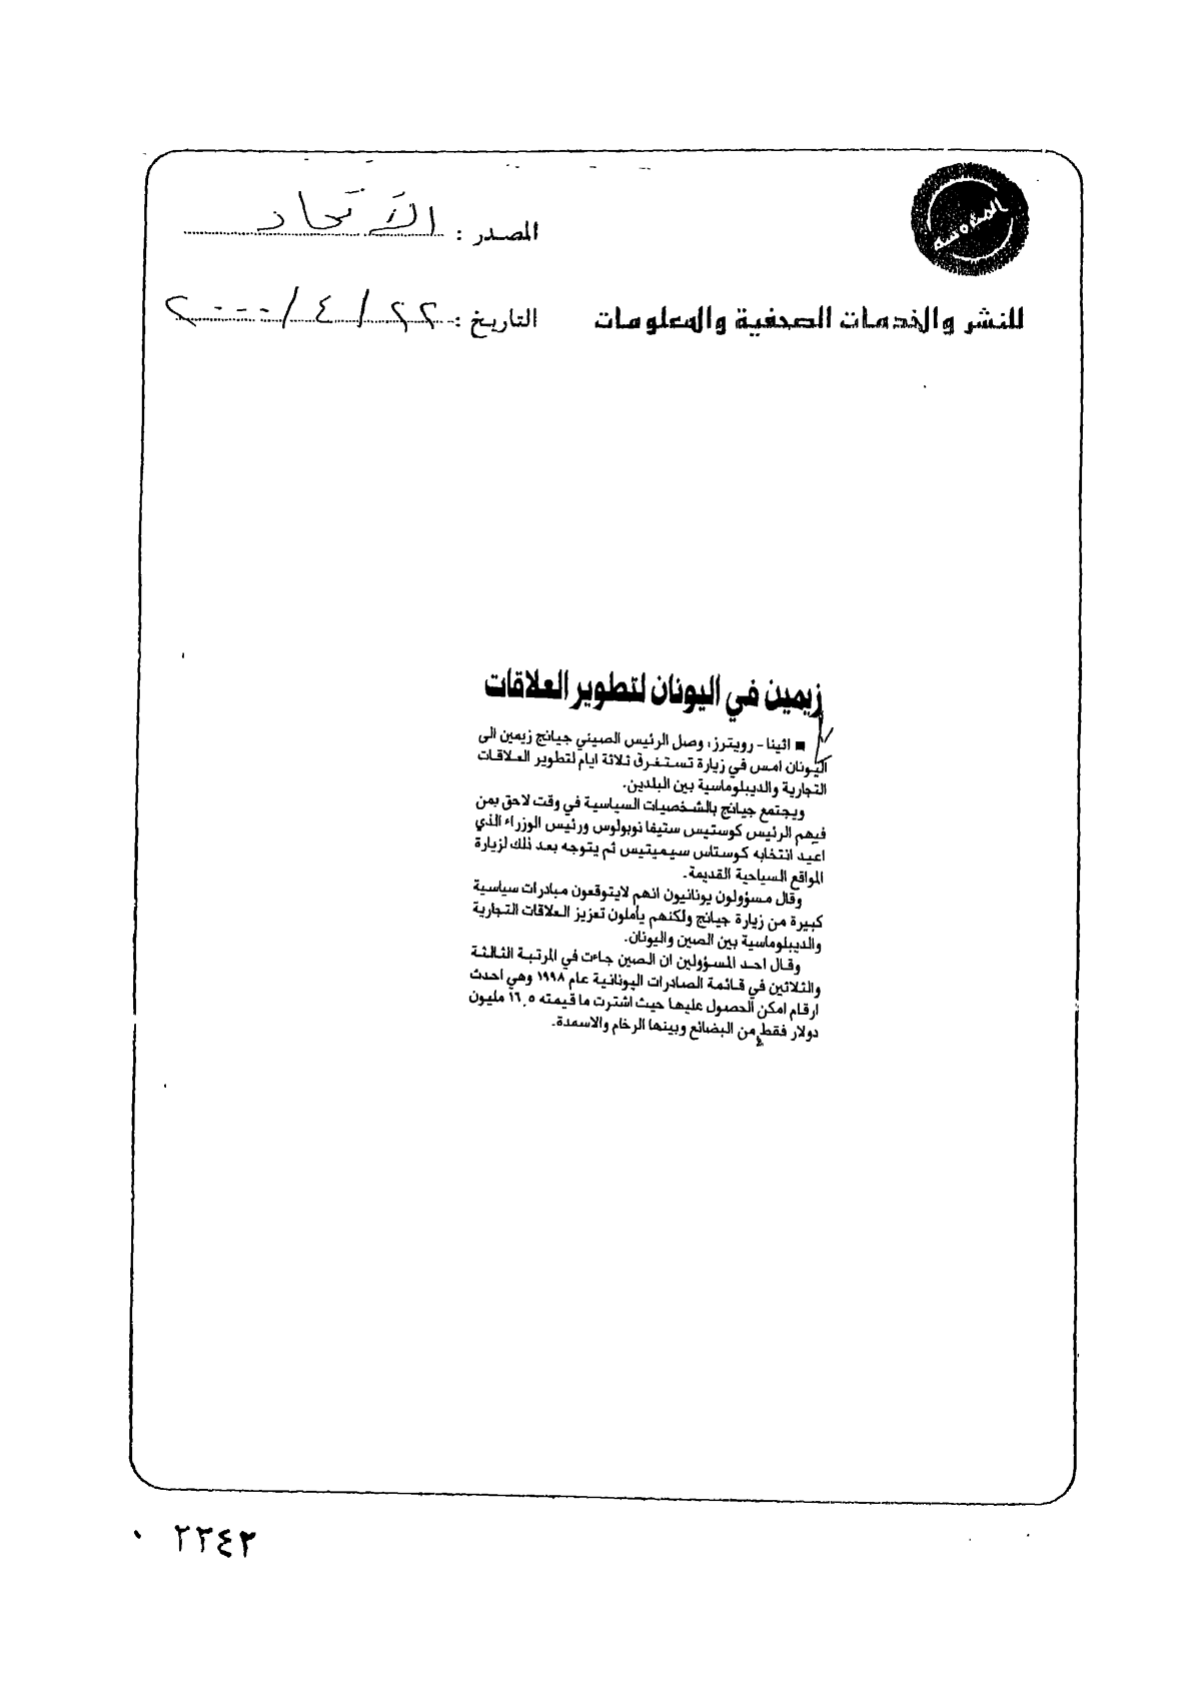 المصدر : الاتحاد
للنشر والخدمات الصحفية والمعلومات
التاريخ : ٢٢ / ٤ / ٢٠٠٠
زيمين في اليونان لتطوير العلاقات
■ اثينا - رويترز: وصل الرئيس الصيني جيانج زيمين الى
اليونان امس في زيارة تستغرق ثلاثة ايام لتطوير العلاقات
التجارية والديبلوماسية بين البلدين.
ويجتمع جيانج بالشخصيات السياسية في وقت لاحق بمن
فيهم الرئيس كوستيس ستيفا نوبولوس ورئيس الوزراء الذي
اعيد انتخابه كوستاس سيميتيس ثم يتوجه بعد ذلك لزيارة
المواقع السياحية القديمة.
وقال مسؤولون يونانيون انهم لايتوقعون مبادرات سياسية
كبيرة من زيارة جيانج ولكنهم يأملون تعزيز العلاقات التجارية
والديبلوماسية بين الصين واليونان.
وقال احد المسؤولين ان الصين جاءت في المرتبة الثالثة
والثلاثين في قائمة الصادرات اليونانية عام ١٩٩٨ وهي احدث
ارقام امكن الحصول عليها حيث اشترت ما قيمته ١٦,٥ مليون
دولار فقط من البضائع وبينها الرخام والاسمدة.